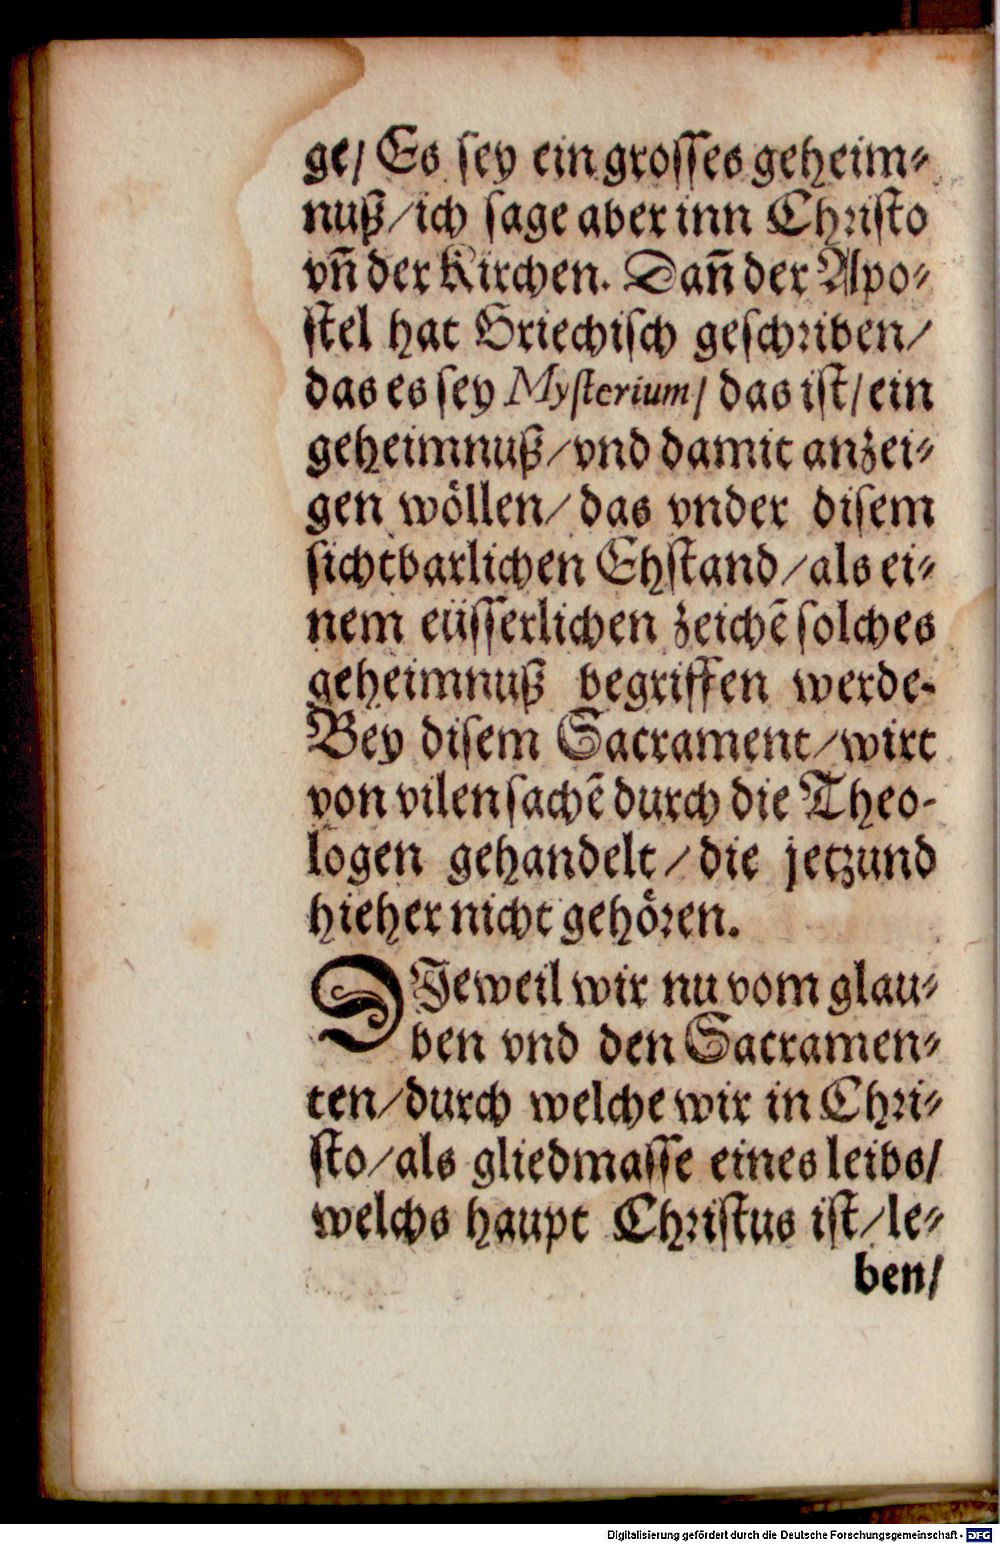 ge/ Es sey ein grosses geheim⸗
nuß/ ich sage aber inn Christo
vñ der Kirchen. Dañ der Apo⸗
stel hat Griechisch geschriben/
das es sey Mysterium/ das ist/ ein
geheimnuß/ vnd damit anzei⸗
gen wöllen/ das vnder disem
sichtbarlichen Ehstand/ als ei⸗
nem eüsserlichen zeichẽ solches
geheimnuß begriffen werde.
Bey disem Sacrament/ wirt
von vilen sachẽ durch die Theo-
logen gehandelt/ die jetzund
hieher nicht gehören.
DIeweil wir nu vom glau⸗
ben vnd den Sacramen⸗
ten/ durch welche wir in Chri⸗
sto/ als gliedmasse eines leibs/
welchs haupt Christus ist/ le⸗
ben/
Digitalisierung gefördert durch die Deutsche Forschungsgemeinschaft - DFG